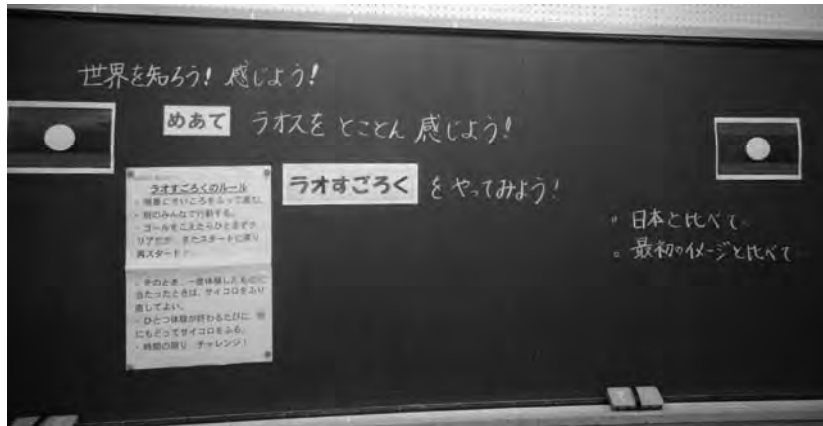 世界を知ろう! 感じよう!
めあて ラオスを とことん 感じよう!
ラオすごろく を やってみよう!
ラオすごろくのルール
・順番にさいころをふって進む。
・班のみんなで行動する。
・ゴールをこえたらひとまずク
リアだが、またスタートに戻り
再スタート
・そのとき、一度体験したものに
当たったときは、サイコロをふり
直してよい。
・ひとつ体験が終わるたびに、
にもどってサイコロをふる。
・時間の限り チャレンジ!
。日本と比べて
。最初のイメージと比べて